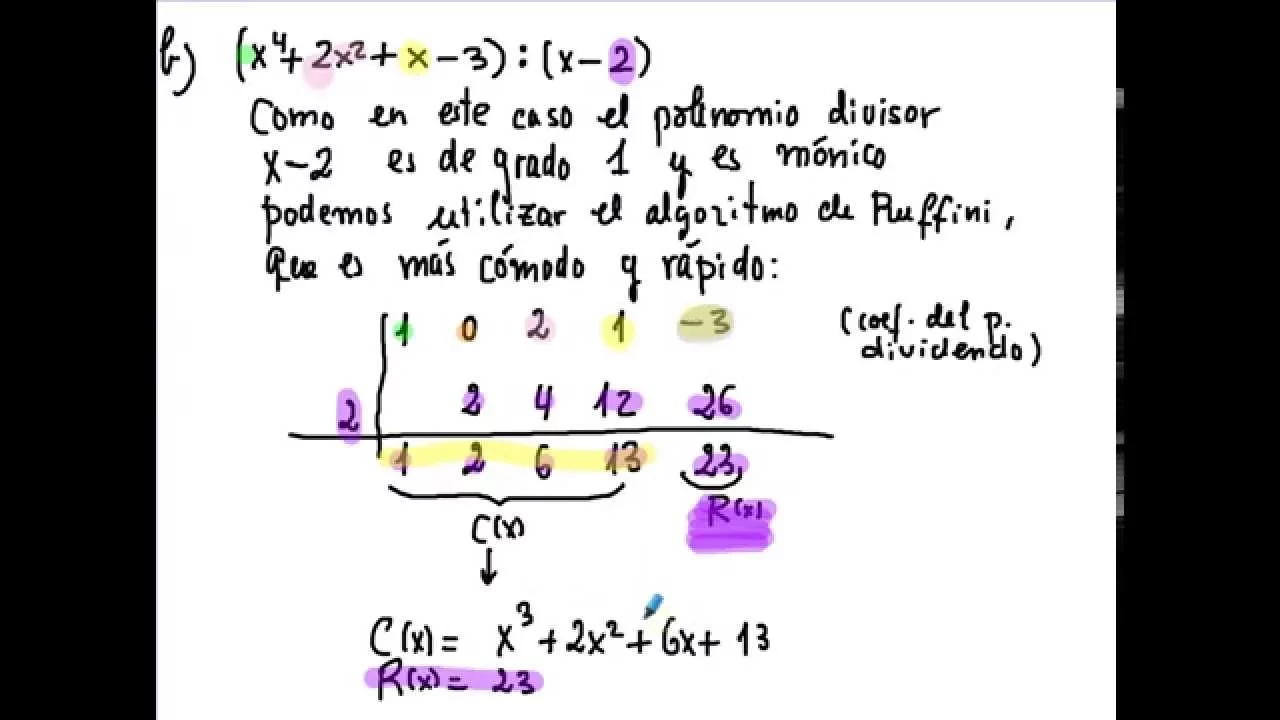 b) (x⁴+2x²+x-3):(x-2)
Como en este caso el polinomio divisor
x-2 es de grado 1 y es mónico
podemos utilizar el algoritmo de Ruffini,
que es más cómodo y rápido:
1 0 2 1 -3 (coef. del p.
dividendo)
2 2 4 12 26
1 2 6 13 23
C(x) R(x)
↓
C(x)= x³+2x²+6x+13
R(x)= 23